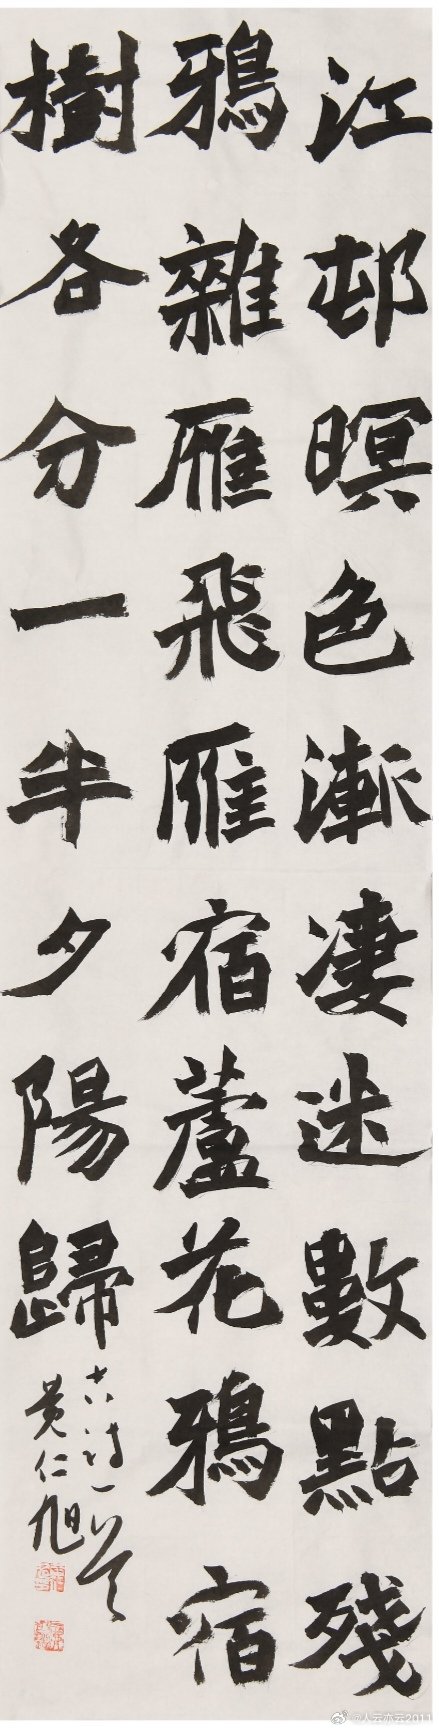 江邨暝色漸凄迷數點殘
鴉雜雁飛雁宿蘆花鴉宿
樹各分一半夕陽歸
古詩一首
黄仁旭
@人云亦云2011